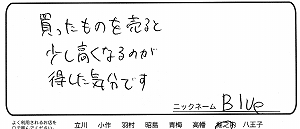 買ったものを売ると
少し高くなるのが
得した気分です
ニックネーム Blue
よく利用されるお店を
○で囲んでください。 立川 小作 羽村 昭島 青梅 高幡 八王子